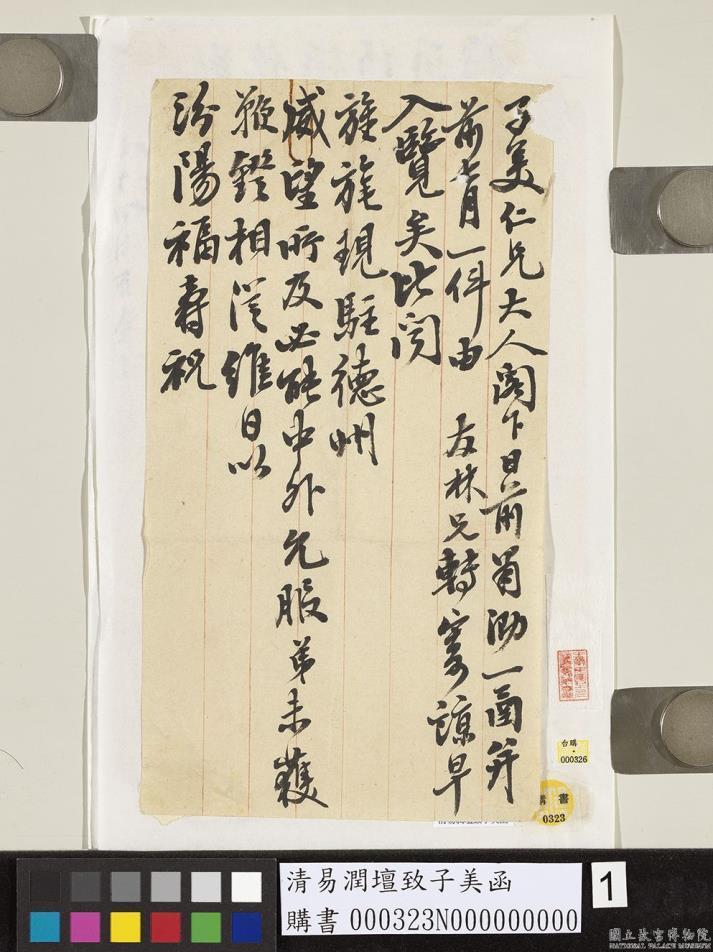 子美仁兄大人閣下日前肅泐一函并
前七月一件由　友林兄轉寄諒早
入覽矣比聞
旌旄現駐德州
威望所及必能中外允服弟未獲
鞭鐙相從維日以
汾陽福壽祝
台購
000326
購 書
0323
清易潤壇致子美函
購書 000323N000000000
1
國立故宮博物院
NATIONAL PALACE MUSEUM